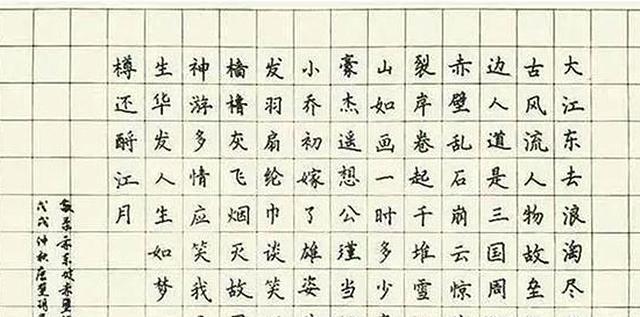 大江东去浪淘尽
古风流人物故垒
边人道是三国周
赤壁乱石崩云惊
裂岸卷起千堆雪
山如画一时多少
豪杰遥想公瑾当
小乔初嫁了雄姿
发羽扇纶巾谈笑
樯橹灰飞烟灭故
神游多情应笑我
生华发人生如梦
樽还酹江月
戊戌仲秋